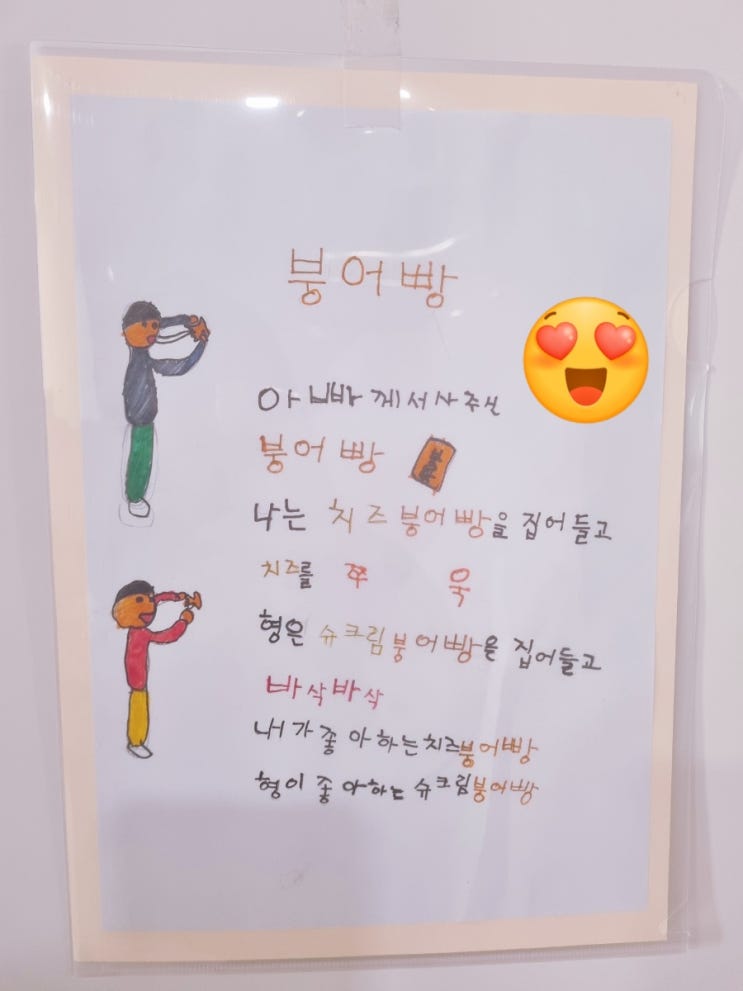 붕어빵
아빠께서 사주신
붕어빵
나는 치즈붕어빵을 집어들고
치즈를 쭈 욱
형은 슈크림붕어빵을 집어들고
바삭바삭
내가 좋아하는 치즈붕어빵
형이 좋아하는 슈크림붕어빵